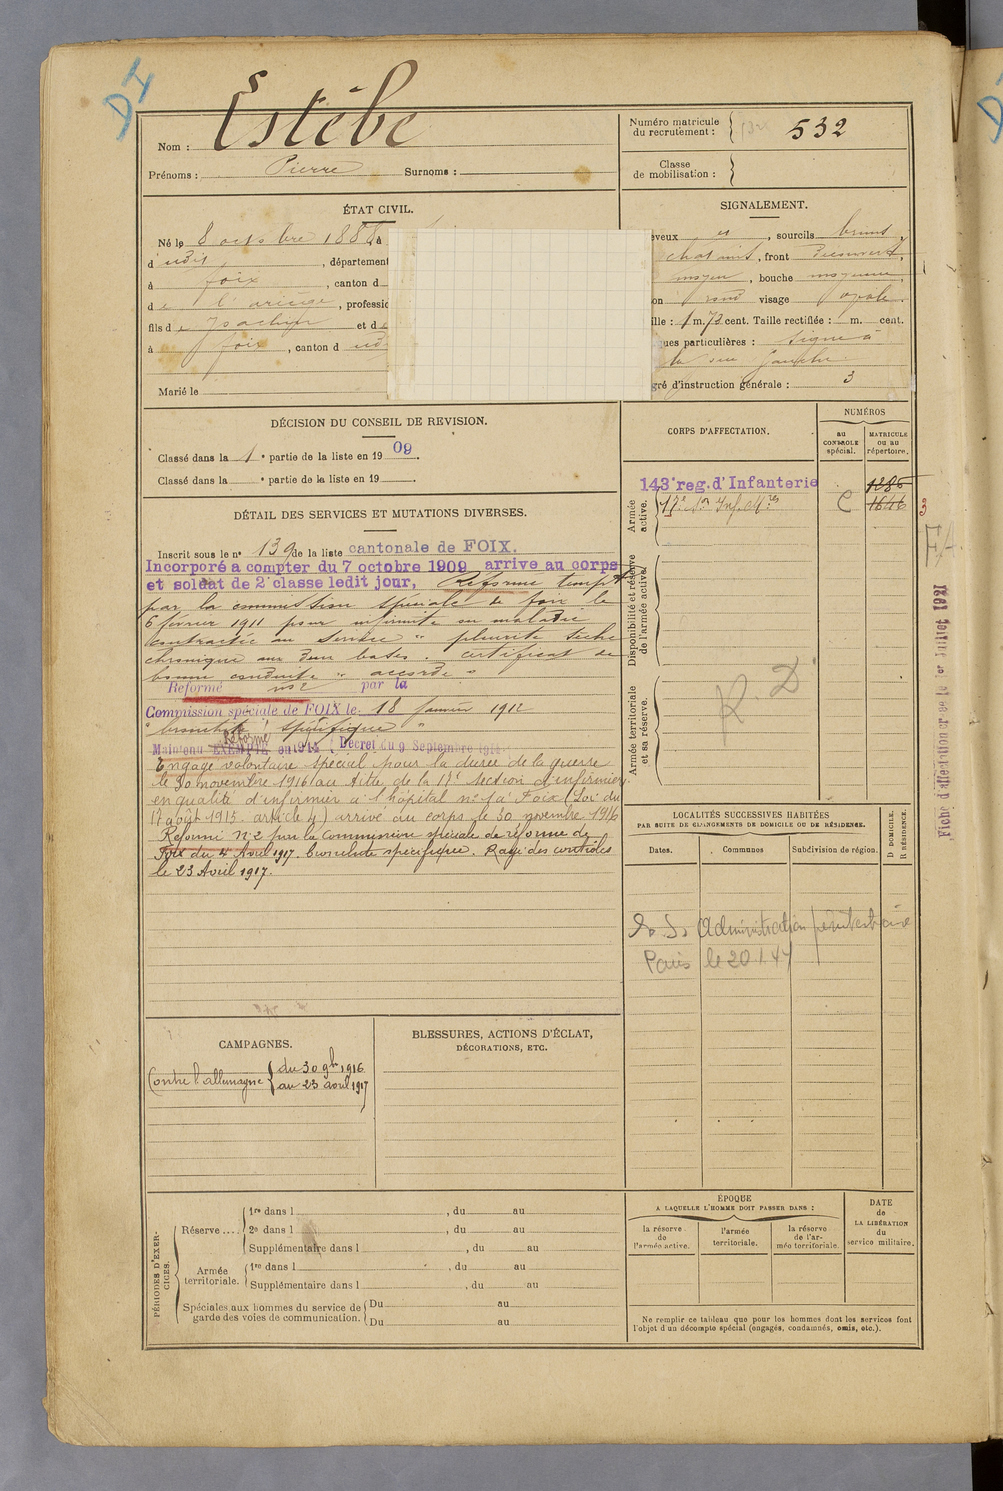 DI
Nom : Estèbe
Prénoms : Pierre Surnoms :
Numéro matricule du recrutement : 532
Classe de mobilisation :
ÉTAT CIVIL.
Né le 8 octobre 188 à
d udit , département
à foix , canton d
d e l'ariège , professi
fils d e Joachim et d
à foix , canton d
Marié le
SIGNALEMENT.
eveux , sourcils bruns
chatains , front Découvert
moyen , bouche moyenne
on rond visage ovale
ille : 1 m. 73 cent. Taille rectifiée : m. cent.
ques particulières : signe à
la joue gauche
gré d'instruction générale : 3
DÉCISION DU CONSEIL DE REVISION.
Classé dans la 1 e partie de la liste en 1909.
Classé dans la e partie de la liste en 19 .
CORPS D'AFFECTATION.
NUMÉROS
au CONTROLE spécial.
MATRICULE OU AU répertoire.
Armée active.
143e reg. d'Infanterie 1286
17e Son Inf. Mres C 1646
Disponibilité et réserve de l'armée active.
Armée territoriale et sa réserve.
R. D
3
FA
Fiche d'affectation créée le 1er Juillet 1921
DÉTAIL DES SERVICES ET MUTATIONS DIVERSES.
Inscrit sous le no 139 de la liste cantonale de FOIX.
Incorporé a compter du 7 octobre 1909 arrive au corps
et soldat de 2e classe ledit jour, Réforme tempre
par la commission spéciale de foix le
6 février 1911 pour infirmité ou maladie
contractée au service " pleurite sèche
chronique aux deux bases " certificat de
bonne conduite " accordé "
Réformé no 2 par la
Commission spéciale de FOIX le 18 janvier 1912
" bronchite spécifique "
Maintenu EXEMPTÉ Réformé en 1914 (Décret du 9 Septembre 1914
Engagé volontaire spécial pour la durée de la guerre
le 30 novembre 1916 au titre de la 17e Section d'infirmiers
en qualité d'infirmier à l'hôpital no 1 à Foix (Loi du
17 août 1915. article 4) arrivé au corps le 30 novembre 1916
Réformé N° 2 par la Commission spéciale de réforme de
Foix du 4 Avril 1917. bronchite spécifique. Rayé des contrôles
le 23 Avril 1917.
LOCALITÉS SUCCESSIVES HABITÉES
PAR SUITE DE CHANGEMENTS DE DOMICILE OU DE RÉSIDENCE.
Dates. Communes Subdivision de région.
D DOMICILE.
R RÉSIDENCE.
Administration pénitentiaire
Paris le 20 1 47
CAMPAGNES.
Contre l'allemagne { du 30 9bre 1916
au 23 avril 1917
BLESSURES, ACTIONS D'ÉCLAT,
DÉCORATIONS, ETC.
PÉRIODES D'EXERCICES.
Réserve....
1re dans l , du au
2e dans l , du au
Supplémentaire dans l , du au
Armée territoriale.
1re dans l , du au
Supplémentaire dans l , du au
Spéciales aux hommes du service de garde des voies de communication.
Du au
Du au
ÉPOQUE
A LAQUELLE L'HOMME DOIT PASSER DANS :
la réserve de l'armée active.
l'armée territoriale.
la réserve de l'armée territoriale.
DATE DE LA LIBÉRATION du service militaire.
Ne remplir ce tableau que pour les hommes dont les services font
l'objet d'un décompte spécial (engagés, condamnés, omis, etc.).